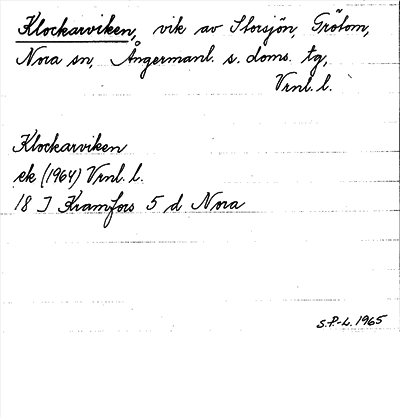 Klockarviken, vik av Storsjön, Grötom,
Nora sn, Ångermanl. s. doms. tg,
Vrnl. l.
Klockarviken
ek (1964) Vrnl. l.
18 I Kramfors 5 d Nora
S.P-L. 1965